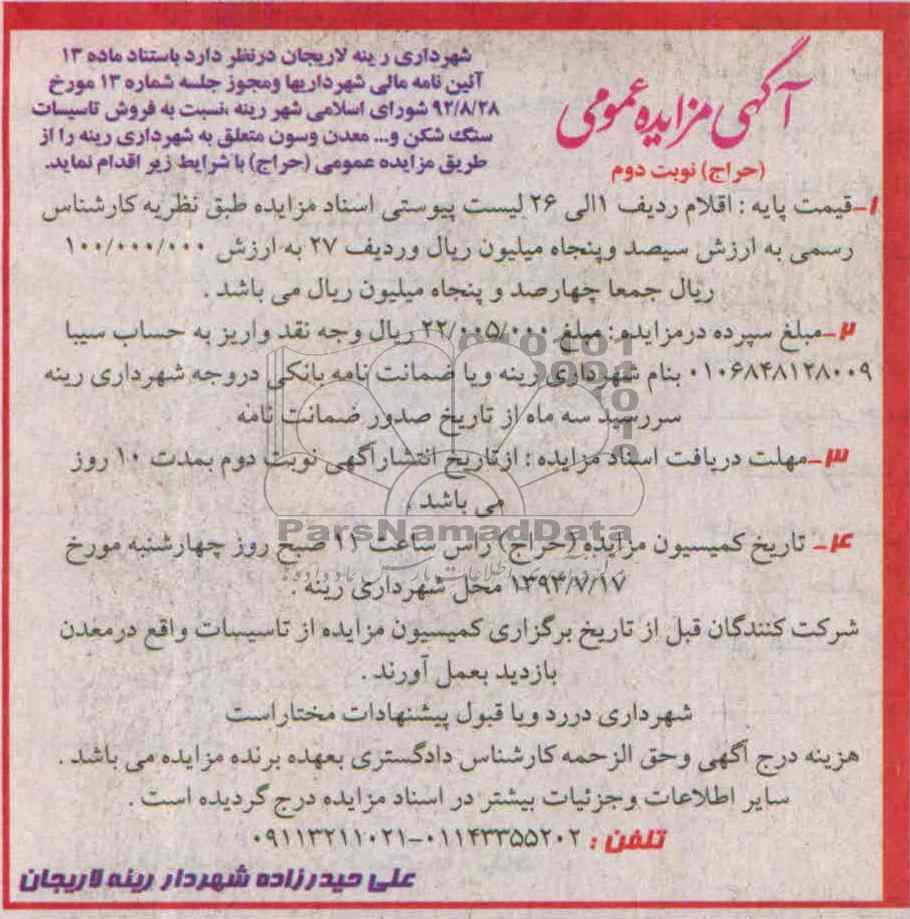 آگهی مزایده عمومی
(حراج) نوبت دوم
شهرداری رینه لاریجان درنظر دارد باستناد ماده ۱۳
آئین نامه مالی شهرداریها ومجوز جلسه شماره ۱۳ مورخ
۹۲/۸/۲۸ شورای اسلامی شهر رینه ،نسبت به فروش تاسیسات
سنگ شکن و... معدن وسون متعلق به شهرداری رینه را از
طریق مزایده عمومی (حراج) با شرایط زیر اقدام نماید.
۱-قیمت پایه : اقلام ردیف ۱الی ۲۶ لیست پیوستی اسناد مزایده طبق نظریه کارشناس
رسمی به ارزش سیصد وپنجاه میلیون ریال وردیف ۲۷ به ارزش ۱۰۰/۰۰۰/۰۰۰
ریال جمعا چهارصد و پنجاه میلیون ریال می باشد .
۲-مبلغ سپرده درمزایده : مبلغ ۲۲/۰۰۵/۰۰۰ ریال وجه نقد واریز به حساب سیبا
۰۱۰۶۸۴۸۱۲۸۰۰۹ بنام شهرداری رینه ویا ضمانت نامه بانکی دروجه شهرداری رینه
سررسید سه ماه از تاریخ صدور ضمانت نامه
۳-مهلت دریافت اسناد مزایده : ازتاریخ انتشارآگهی نوبت دوم بمدت ۱۰ روز
می باشد .
ParsNamadData
۴- تاریخ کمیسیون مزایده (حراج) راس ساعت ۱۱ صبح روز چهارشنبه مورخ
۱۳۹۳/۷/۱۷ محل شهرداری رینه .
شرکت کنندگان قبل از تاریخ برگزاری کمیسیون مزایده از تاسیسات واقع درمعدن
بازدید بعمل آورند .
شهرداری دررد ویا قبول پیشنهادات مختاراست
هزینه درج آگهی وحق الزحمه کارشناس دادگستری بعهده برنده مزایده می باشد .
سایر اطلاعات وجزئیات بیشتر در اسناد مزایده درج گردیده است .
تلفن : ۰۱۱۴۳۳۵۵۲۰۲-۰۹۱۱۳۲۱۱۰۲۱
علی حیدرزاده شهردار رینه لاریجان